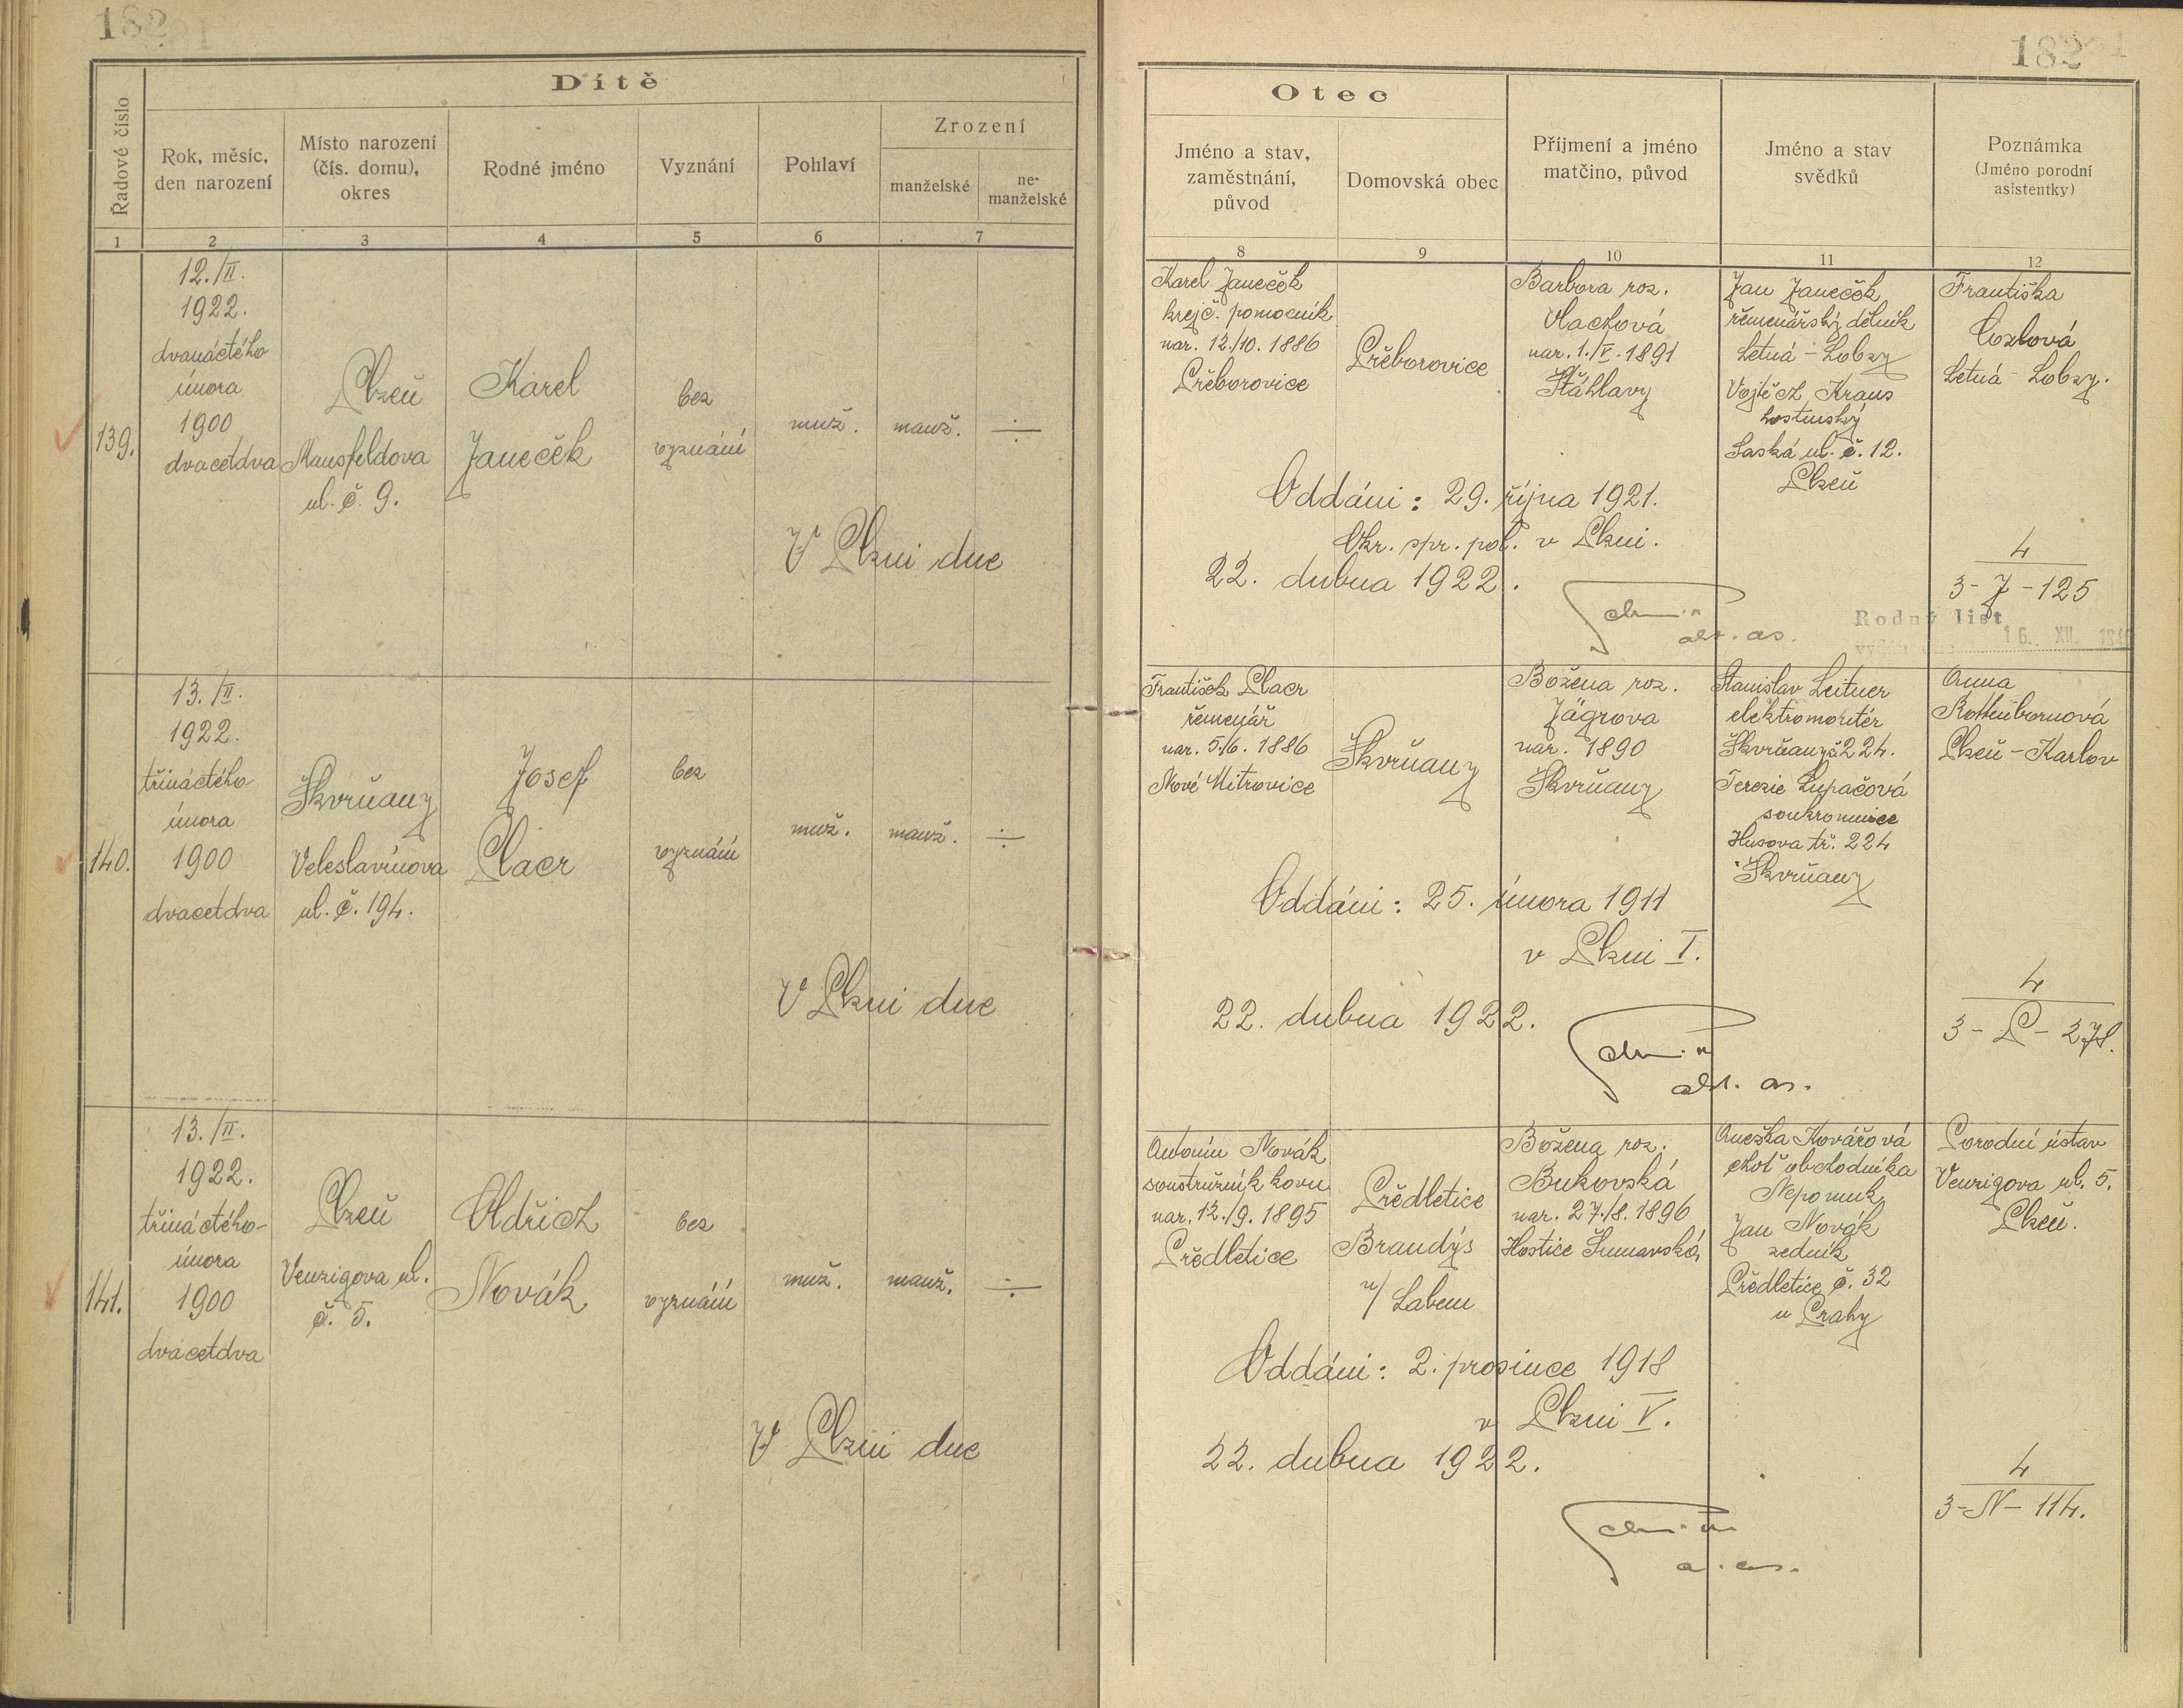 182
Dítě
Řadové číslo
Rok, měsíc,
den narození
Místo narození
(čís. domu),
okres
Rodné jméno
Vyznání
Pohlaví
Zrození
manželské
ne-
manželské
1 2 3 4 5 6 7
139.
12./II.
1922.
dvanáctého
února
1900
dvacetdva
Plzeň
Mansfeldova
ul. č. 9.
Karel
Janeček
bez
vyznání
muž.
manž.
÷
V Plzni dne
140.
13./II.
1922.
třináctého
února
1900
dvacetdva
Škvrňany
Veleslavínova
ul. č. 194.
Josef
Placr
bez
vyznání
muž.
manž.
÷
V Plzni dne
141.
13./II.
1922.
třináctého-
února
1900
dvacetdva
Plzeň
Venzigova ul.
č. 5.
Oldřich
Novák
bez
vyznání
muž.
manž.
÷
V Plzni dne
182
Otec
Jméno a stav,
zaměstnání,
původ
Domovská obec
Příjmení a jméno
matčino, původ
Jméno a stav
svědků
Poznámka
(Jméno porodní
asistentky)
8 9 10 11 12
Karel Janeček
krejč. pomocník
nar. 12./10. 1886
Přeborovice
Přeborovice
Barbora roz.
Vlachová
nar. 1./V. 1891
Šťáhlavy
Jan Janeček
řemenářský dělník
Letná - Lobzy
Vojtěch Kraus
hostinský
Saská ul. č. 12.
Plzeň
Františka
Letná - Lobzy.
Oddáni: 29. října 1921.
Okr. spr. pol. v Plzni.
22. dubna 1922.
4
3 - J - 125
Rodný list
16. XII.
František Placr
řemenář
nar. 5./6. 1886
Nové Mitrovice
Škvrňany
Božena roz.
Jägrova
nar. 1890
Škvrňany
Stanislav Leitner
elektromontér
Škvrňany č. 224.
Terezie Lupačová
soukromnice
Husova tř. 224
Škvrňany
Anna
Rottenbornová
Plzeň - Karlov
Oddáni: 25. února 1911
v Plzni I.
22. dubna 1922.
4
3 - P - 278.
Antonín Novák
soustružník kovu
nar. 12./9. 1895
Předletice
Předletice
Brandýs
n/ Labem
Božena roz.
Bukovská
nar. 27./8. 1896
Hostice Šumavská
Anežka Kovářová
choť obchodníka
Nepomuk
Jan Novák
zedník
Předletice č. 32
u Prahy
Porodní ústav
Venzigova ul. 5.
Plzeň.
Oddáni: 2. prosince 1918
v Plzni V.
22. dubna 1922.
4
3 - N - 114.